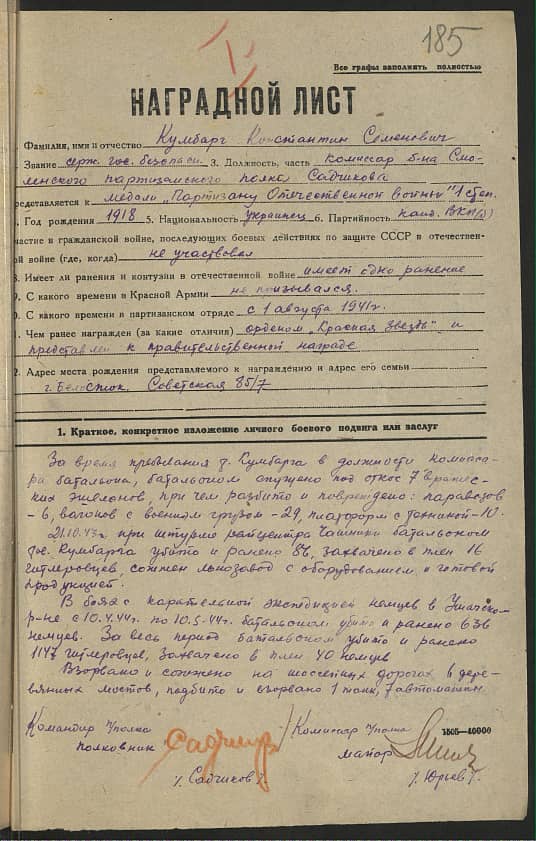 185
Все графы заполнять полностью
НАГРАДНОЙ ЛИСТ
Фамилия, имя и отчество Кумбарг Константин Семенович
Звание серж. гос. безопасн. 3. Должность, часть комиссар б-на Смо-
ленского партизанского полка Садчикова
редставляется к медали „Партизану Отечественной войны" 1 степ.
. Год рождения 1918 5. Национальность украинец 6. Партийность канд. ВКП(б)
частие в гражданской войне, последующих боевых действиях по защите СССР в отечествен-
ой войне (где, когда) не участвовал
8. Имеет ли ранения и контузии в отечественной войне имеет одно ранение
. С какого времени в Красной Армии не призывался.
0. С какого времени в партизанском отряде с 1 августа 1941г.
1. Чем ранее награжден (за какие отличия) орденом „Красная Звезда" и
представлен к правительственной награде
2. Адрес места рождения представляемого к награждению и адрес его семьи
г. Белосток. Советская 85/7
1. Краткое, конкретное изложение личного боевого подвига или заслуг
За время пребывания т. Кумбарга в должности комисса-
ра батальона, батальоном спущено под откос 7 вражес-
ких эшелонов, при чем разбито и повреждено: паравозов
- 6, вагонов с военным грузом - 29, платформ с техникой - 10.
21.10.43г. при штурме райцентра Чашники батальоном
тов. Кумбарга убито и ранено 84, захвачено в плен 16
гитлеровцев сожжен льнозавод с оборудованием и готовой
продукцией.
В боях с карательной экспедицией немцев в Ушачском
р-не с 10.4.44г. по 10.5.44г. батальоном убито и ранено 636
немцев. За весь период батальоном убито и ранено
1147 гитлеровцев, захвачено в плен 40 немцев
Взорвано и сожжено на шоссейных дорогах 6 дере-
вянных мостов, подбито и взорвано 1 танк, 7 автомашин.
Командир полка
Комиссар полка
1505—40000
полковник Садчиков
майор
/Садчиков/.
/Юрьев/.